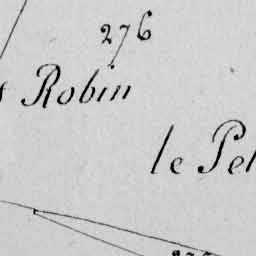 276
Robin
le Pel